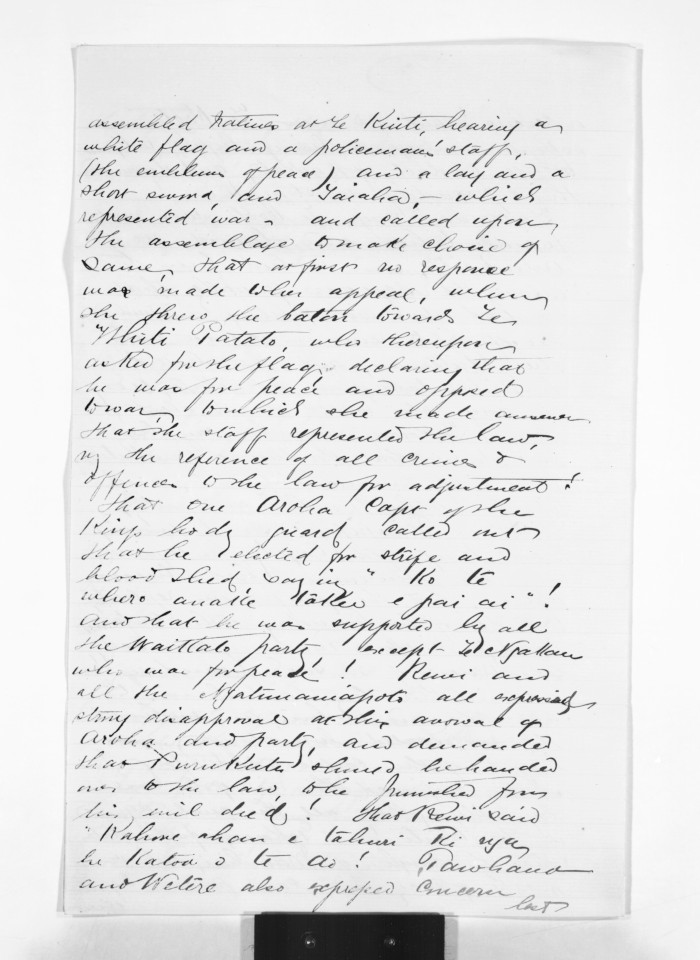 assembled Natives at Te Kuiti, bearing a
white flag and a policeman's staff,
(the emblems of peace) and a long and a
short sword, and Taiaha, - which
represented war - and called upon
the assemblage to make choice of
same, that at first no response
was made to her appeal, when
she threw the baton towards Te
Whiti Patato, who thereupon
asked for the flag, declaring that
he was for peace and opposed
to war, to which she made answer
that the staff represented the law,
the reference of all crimes &
offences to the law for adjustment!
That one Aroha Capt of the
Kings body guard called out
that he elected for strife and
blood shed, saying " Ko te
whero anake take e pai ai "!
and that he was supported by all
the Waikato party, except Te Ngakau
who was for peace! Rewi and
all the Ngatimaniapoto all expressing
strong disapproval at this avowal of
Aroha and party, and demanded
that Purukutu should be handed
over to the law, to be punished for
his evil deed! that Rewi said
" Kahore ahau e tahuri ki nga
he Katoa o te ao! Tawhiao
and Wetere also expressed concern
lest